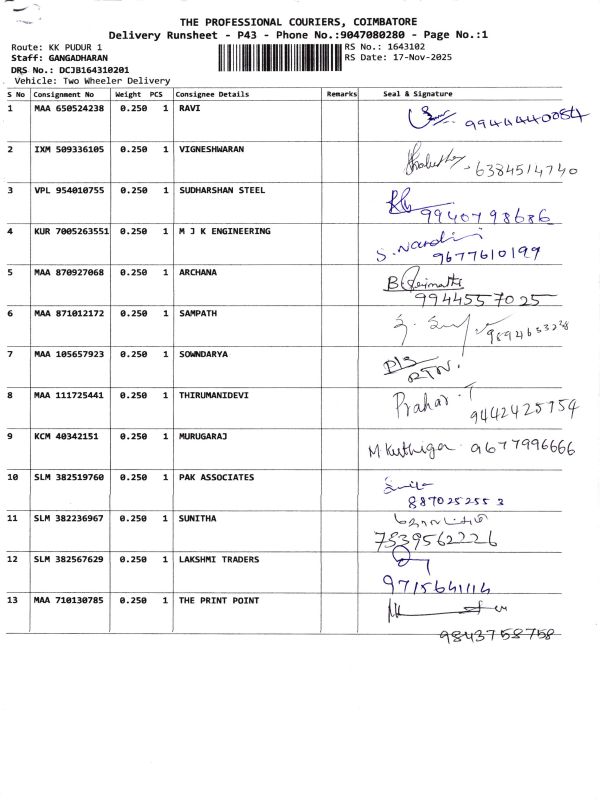 THE PROFESSIONAL COURIERS, COIMBATORE
Delivery Runsheet - P43 - Phone No.:9047080280 - Page No.:1
Route: KK PUDUR 1 RS No.: 1643102
Staff: GANGADHARAN RS Date: 17-Nov-2025
DRS No.: DCJB164310201
Vehicle: Two Wheeler Delivery
S No Consignment No Weight PCS Consignee Details Remarks Seal & Signature
1 MAA 650524238 0.250 1 RAVI
9944440054
2 IXM 509336105 0.250 1 VIGNESHWARAN
6384514740
3 VPL 954010755 0.250 1 SUDHARSHAN STEEL
9940798686
4 KUR 7005263551 0.250 1 M J K ENGINEERING
S. Nandini
9677610199
5 MAA 870927068 0.250 1 ARCHANA
9944557025
6 MAA 871012172 0.250 1 SAMPATH
9894653238
7 MAA 105657923 0.250 1 SOWNDARYA
RTN.
8 MAA 111725441 0.250 1 THIRUMANIDEVI
Prahar. T
9442425754
9 KCM 40342151 0.250 1 MURUGARAJ
M Kuthiga 9677996666
10 SLM 382519760 0.250 1 PAK ASSOCIATES
8870252553
11 SLM 382236967 0.250 1 SUNITHA
7539562226
12 SLM 382567629 0.250 1 LAKSHMI TRADERS
9715641114
13 MAA 710130785 0.250 1 THE PRINT POINT
9843758758